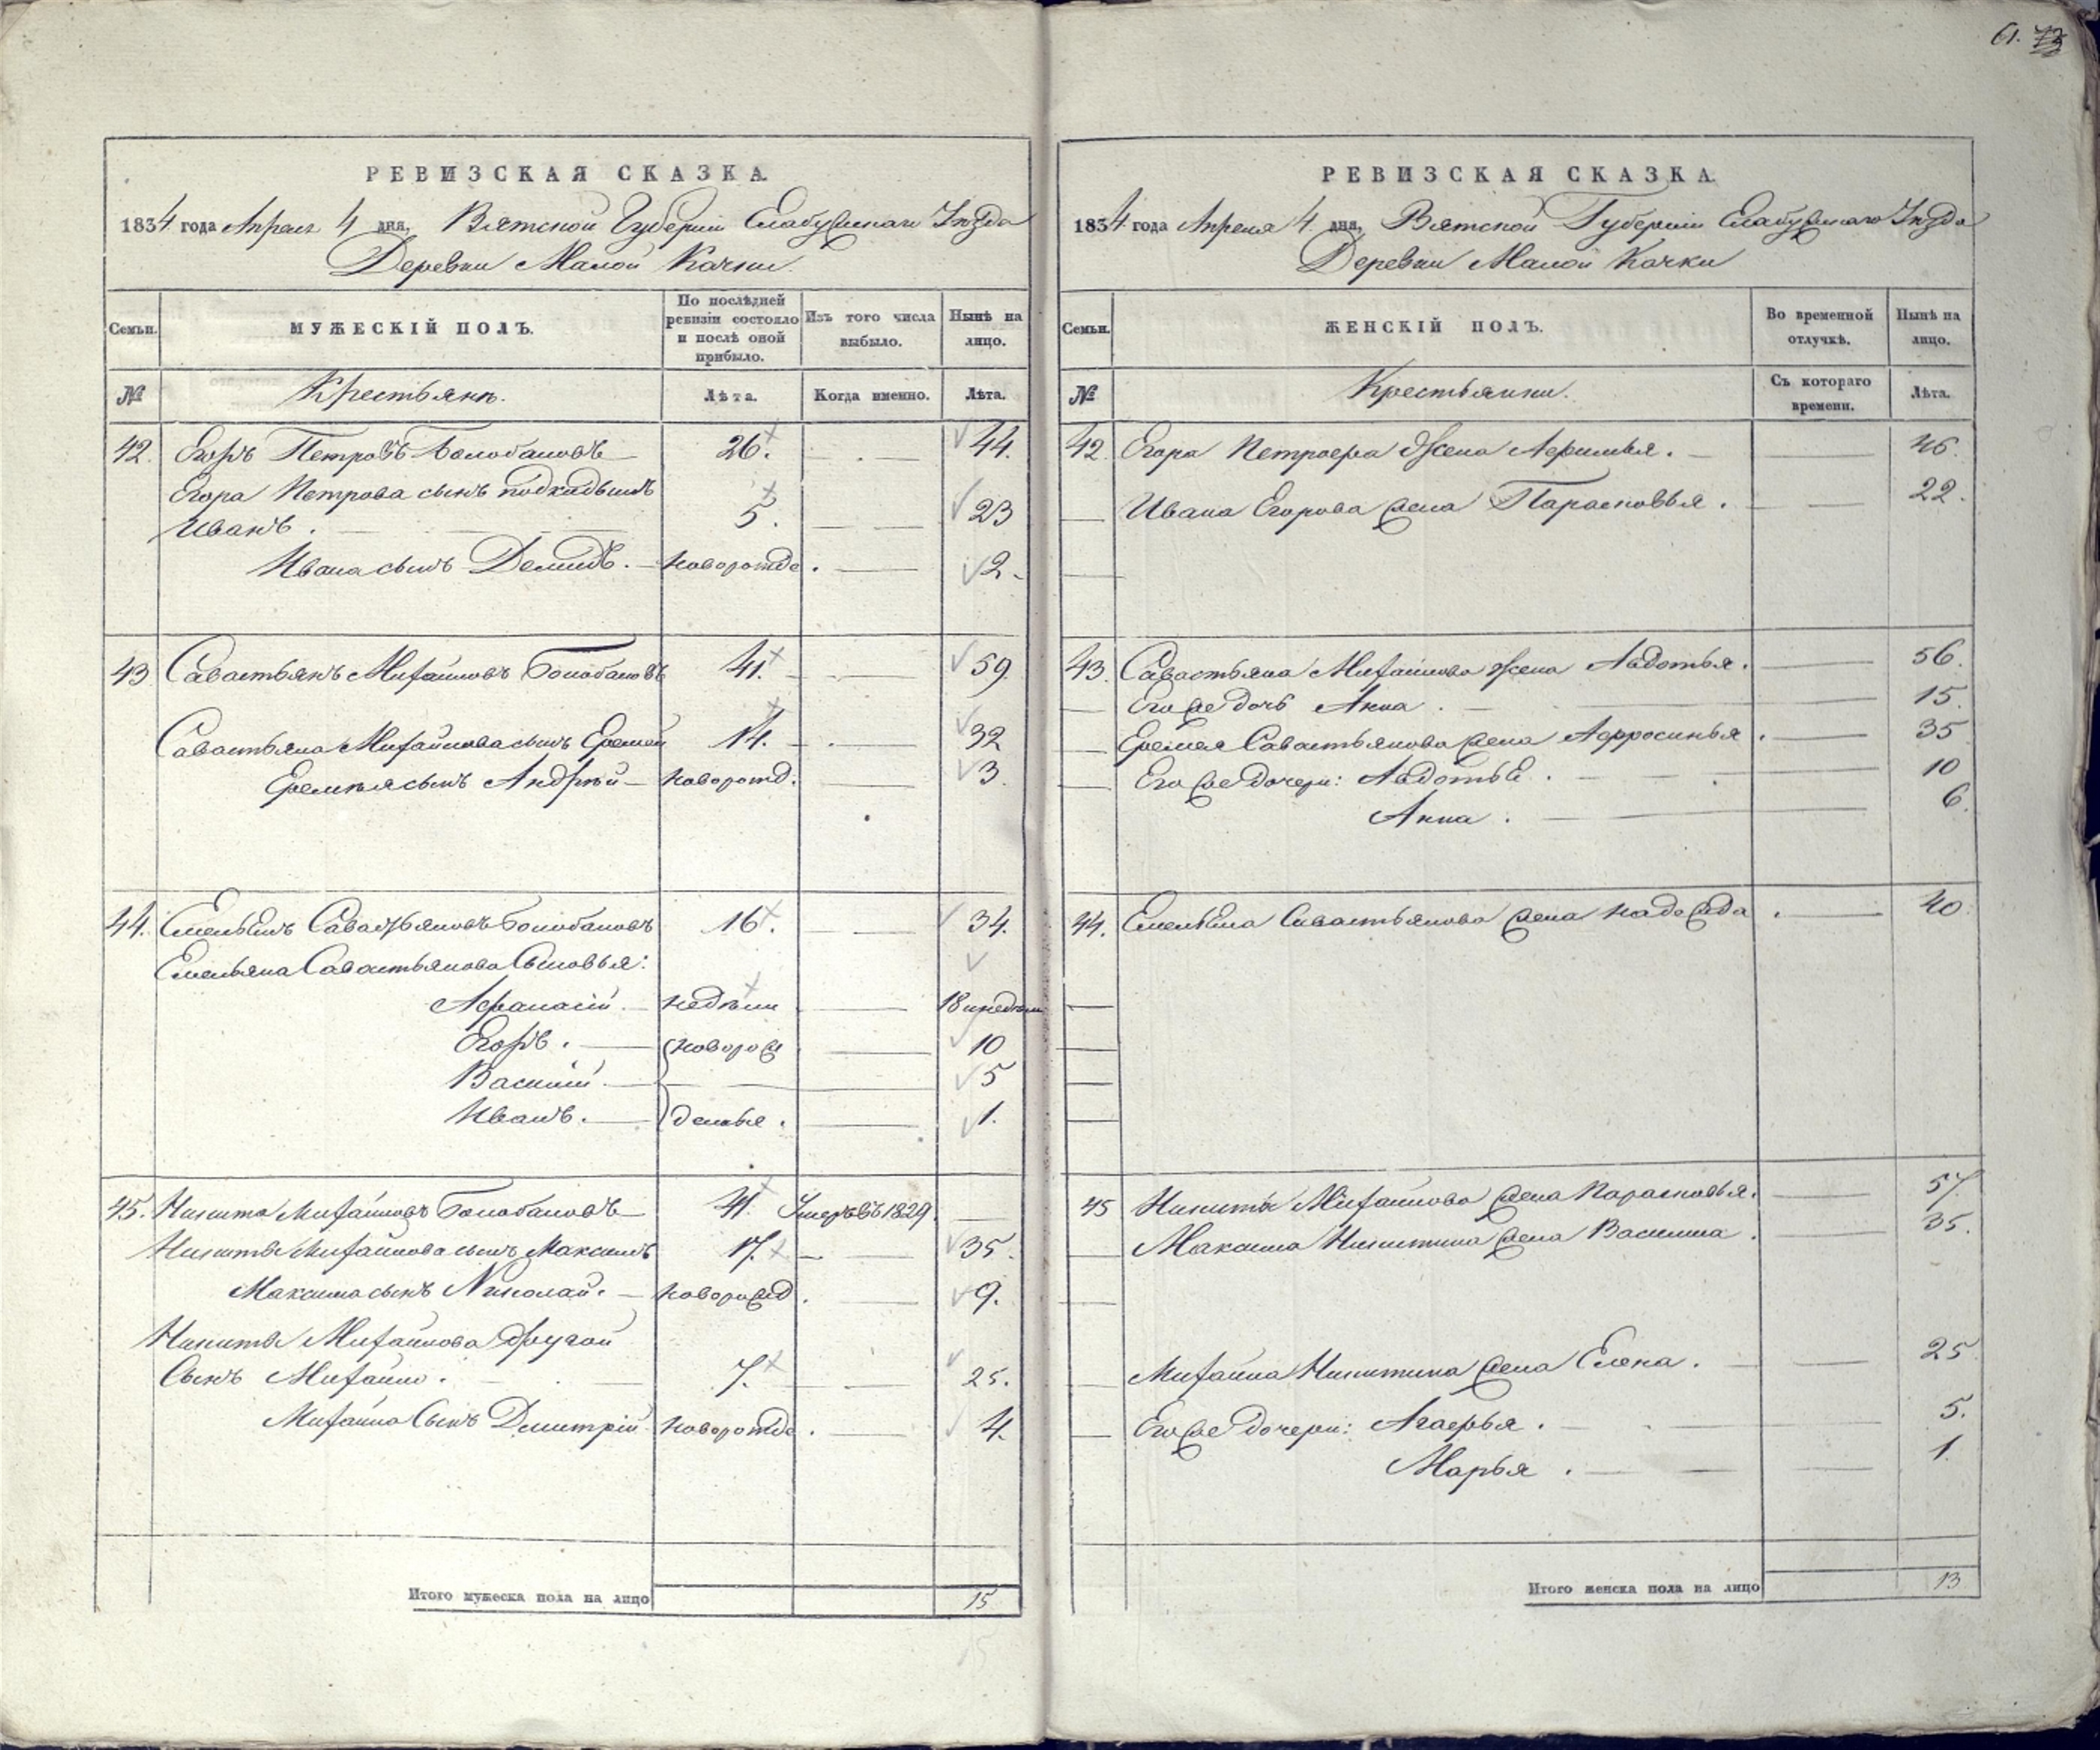 61. 73
РЕВИЗСКАЯ СКАЗКА.
1834 года Апреля 4 дня, Вятской Губерніи Елабужскаго Уѣзда
Деревни Малой Качки.
Семьи.
МУЖЕСКІЙ ПОЛЪ.
По послѣдней ревизіи состояло и послѣ оной прибыло.
Изъ того числа выбыло.
Нынѣ на лицо.
№
Крестьянъ.
Лѣта.
Когда именно.
Лѣта.
42. Егоръ Петровъ Болобановъ 26. 44.
Егора Петрова сынъ подкидышъ
Иванъ. 5. 23
Ивана сынъ Демидъ. новорожде. 2.
43 Савастьянъ Михайловъ Болобановъ 41. 59.
Савастьяна Михайлова сынъ Еремей 14. 32
Еремѣя сынъ Андрѣй новорожд. 3.
44. Емельянъ Савастьяновъ Болобановъ 16. 34.
Емельяна Савастьянова Сыновья:
Афанасій. недѣли 18 и недѣли
Егоръ. новорож 10
Василій. 5
Иванъ. денные. 1.
45. Никита Михайловъ Болобановъ 41. Умеръ въ 1829.
Никиты Михайлова сынъ Максимъ 17. 35.
Максима сынъ Николай. новорожд. 9.
Никиты Михайлова другой
Сынъ Михайло. 7. 25.
Михайла Сынъ Дмитрій новорожде. 4.
Итого мужеска пола на лицо 15
РЕВИЗСКАЯ СКАЗКА.
1834 года Апреля 4 дня, Вятской Губерніи Елабужскаго Уѣзда
Деревни Малой Качки
Семьи.
ЖЕНСКІЙ ПОЛЪ.
Во временной отлучкѣ.
Нынѣ на лицо.
№
Крестьянки.
Съ котораго времени.
Лѣта.
42. Егора Петрова Жена Афимья. 46.
Ивана Егорова жена Парасковья. 22.
43. Савастьяна Михайлова жена Авдотья. 56.
Его же дочь Анна. 15.
Еремея Савастьянова жена Афросинья. 35
Его же дочери: Авдотья. 10
Анна. 6.
44. Емельяна Савастьянова жена Надежда. 40.
45 Никиты Михайлова жена Парасковья. 57.
Максима Никитина жена Василиса. 35.
Михайла Никитина жена Елена. 25
Его же дочери: Агафья. 5.
Марья. 1.
Итого женска пола на лицо 13